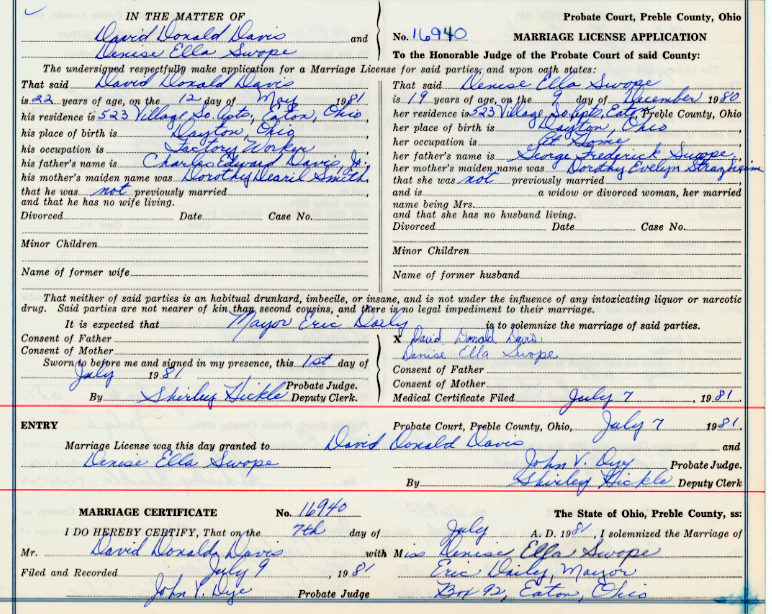 IN THE MATTER OF
David Donald Davis and
Denise Ella Swope
Probate Court, Preble County, Ohio
No. 16940 MARRIAGE LICENSE APPLICATION
To the Honorable Judge of the Probate Court of said County:
The undersigned respectfully make application for a Marriage License for said parties, and upon oath states:
That said David Donald Davis
is 22 years of age, on the 12 day of May 1981
his residence is 523 Village So. Apts, Eaton, Ohio
his place of birth is Dayton, Ohio,
his occupation is Factory Worker,
his father's name is Charles Edward Davis, Jr.,
his mother's maiden name was Dorothy Dearil Smith,
that he was not previously married
and that he has no wife living.
Divorced Date Case No.
Minor Children
Name of former wife
That said Denise Ella Swope
is 19 years of age, on the day of December 1980
her residence is 523 Village So. Apts, Eaton, Preble County, Ohio
her place of birth is Dayton, Ohio,
her occupation is At Home,
her father's name is George Frederick Swope,
her mother's maiden name was Dorothy Evelyn
that she was not previously married
and is a widow or divorced woman, her married
name being Mrs.
and that she has no husband living.
Divorced Date Case No.
Minor Children
Name of former husband
That neither of said parties is an habitual drunkard, imbecile, or insane, and is not under the influence of any intoxicating liquor or narcotic
drug. Said parties are not nearer of kin than second cousins, and there is no legal impediment to their marriage.
It is expected that Mayor Eric Daily is to solemnize the marriage of said parties.
Consent of Father
Consent of Mother
Sworn to before me and signed in my presence, this 1st day of
July 1981
Probate Judge.
By Shirley Hickle Deputy Clerk.
X David Donald Davis
Denise Ella Swope
Consent of Father
Consent of Mother
Medical Certificate Filed July 7, 1981
ENTRY Probate Court, Preble County, Ohio, July 7 1981.
Marriage License was this day granted to David Donald Davis and
Denise Ella Swope
John V. Dye Probate Judge.
By Shirley Hickle Deputy Clerk
MARRIAGE CERTIFICATE No. 16940 The State of Ohio, Preble County, ss:
I DO HEREBY CERTIFY, That on the 7th day of July A. D. 1981, I solemnized the Marriage of
Mr. David Donald Davis with Miss Denise Ella Swope
Filed and Recorded July 9, 1981 Eric Daily, Mayor
John V. Dye Probate Judge Box 92, Eaton, Ohio